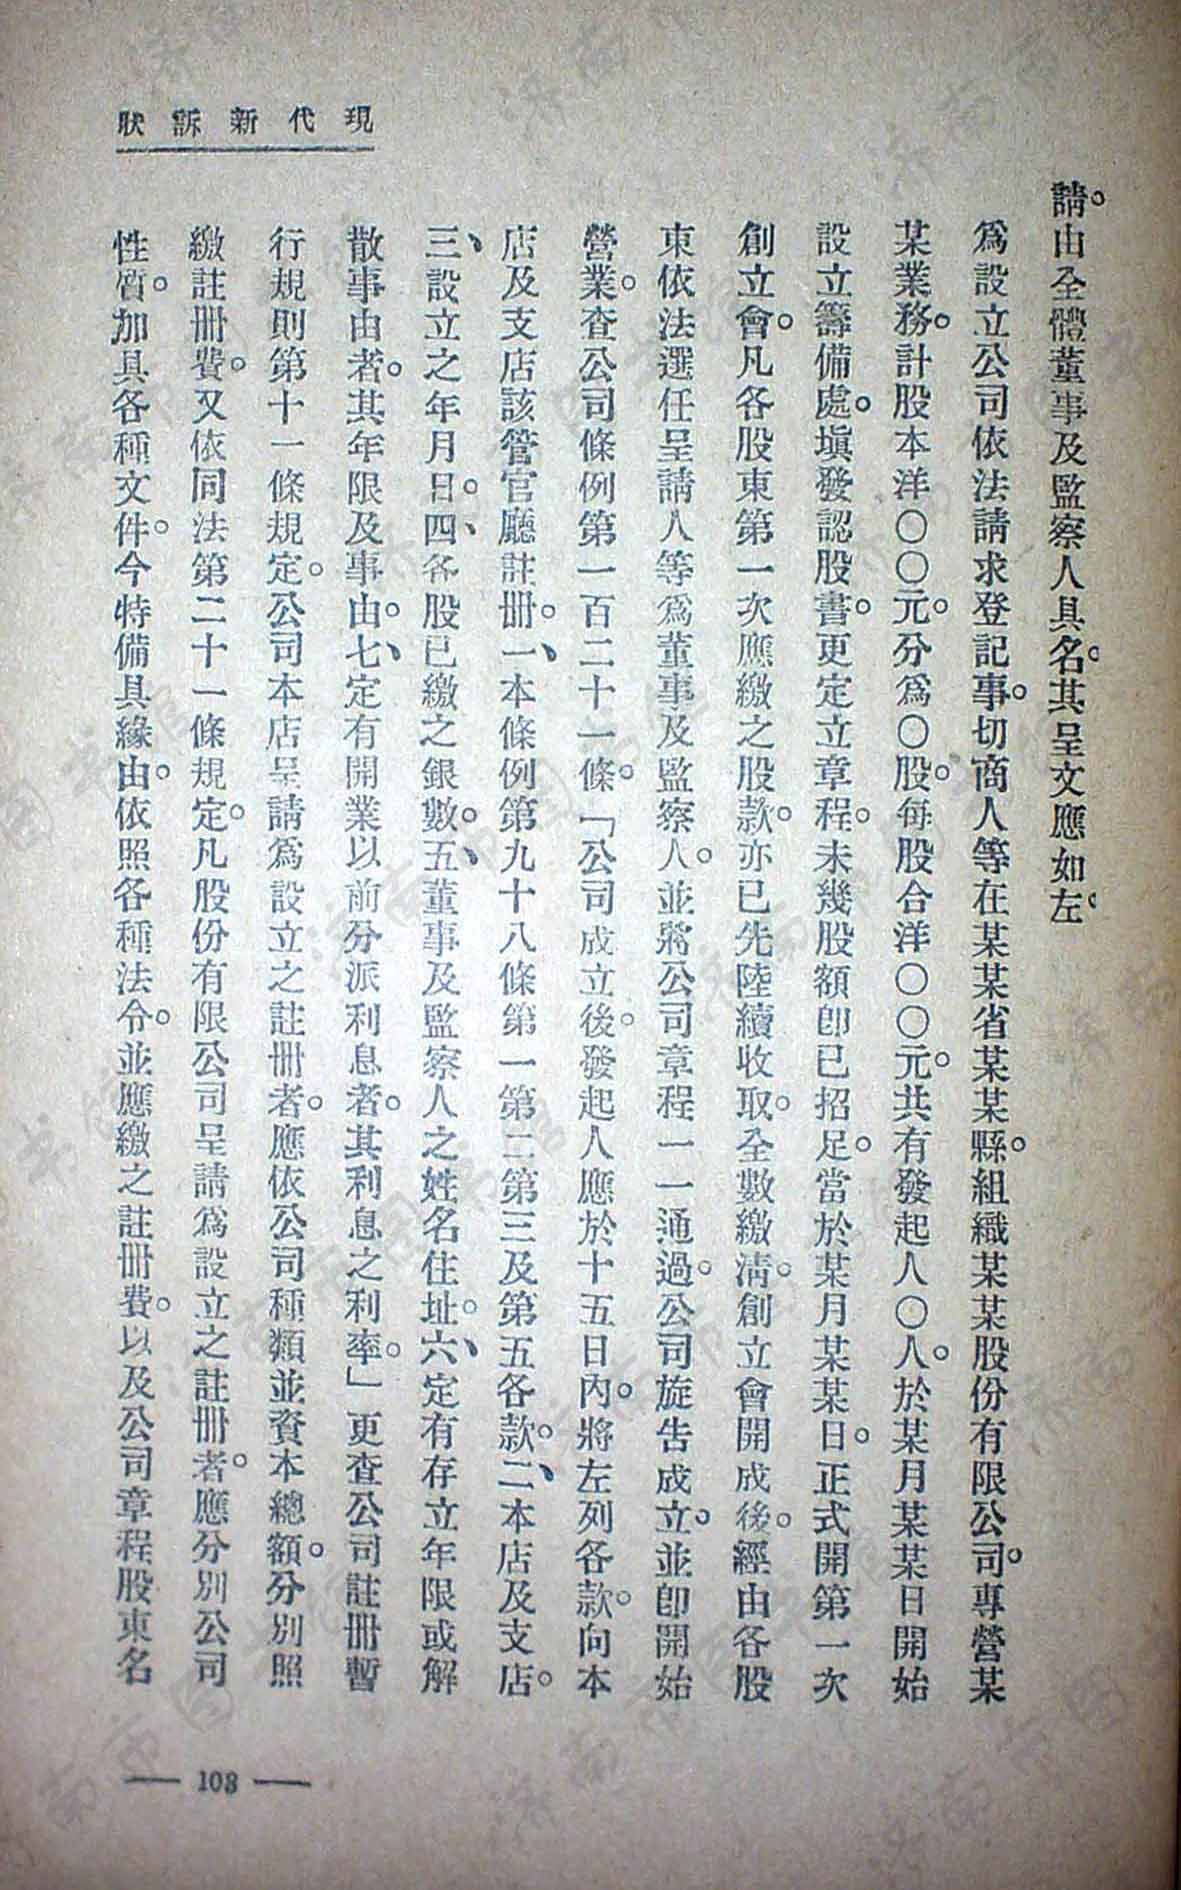 現代新訴狀
請。由全體董事及監察人具名。其呈文應如左。
爲設立公司依法請求登記事。切商人等在某某省某某縣。組織某某股份有限公司。專營某
某業務。計股本洋〇〇元。分爲〇股。每股合洋〇〇元。共有發起人〇人。於某月某某日開始
設立籌備處。塡發認股書。更定立章程。未幾股額卽已招足。當於某月某某日。正式開第一次
創立會。凡各股東第一次應繳之股款。亦已先陸續收取。全數繳淸。創立會開成後。經由各股
東依法選任呈請人等爲董事及監察人。並將公司章程一一通過。公司旋告成立。並卽開始
營業。查公司條例第一百二十一條。「公司成立後。發起人應於十五日內。將左列各款。向本
店及支店該管官廳註册。一、本條例第九十八條第一第二第三及第五各款。二、本店及支店。
三、設立之年月日。四、各股已繳之銀數。五、董事及監察人之姓名住址。六、定有存立年限或解
散事由者。其年限及事由。七、定有開業以前分派利息者。其利息之利率。」更查公司註册暫
行規則第十一條規定。公司本店呈請爲設立之註册者。應依公司種類並資本總額。分別照
繳註册費。又依同法第二十一條規定。凡股份有限公司呈請爲設立之註册者。應分別公司
性質。加具各種文件。今特備具緣由。依照各種法令。並應繳之註册費。以及公司章程股東名
— 103 —
济南市图书馆